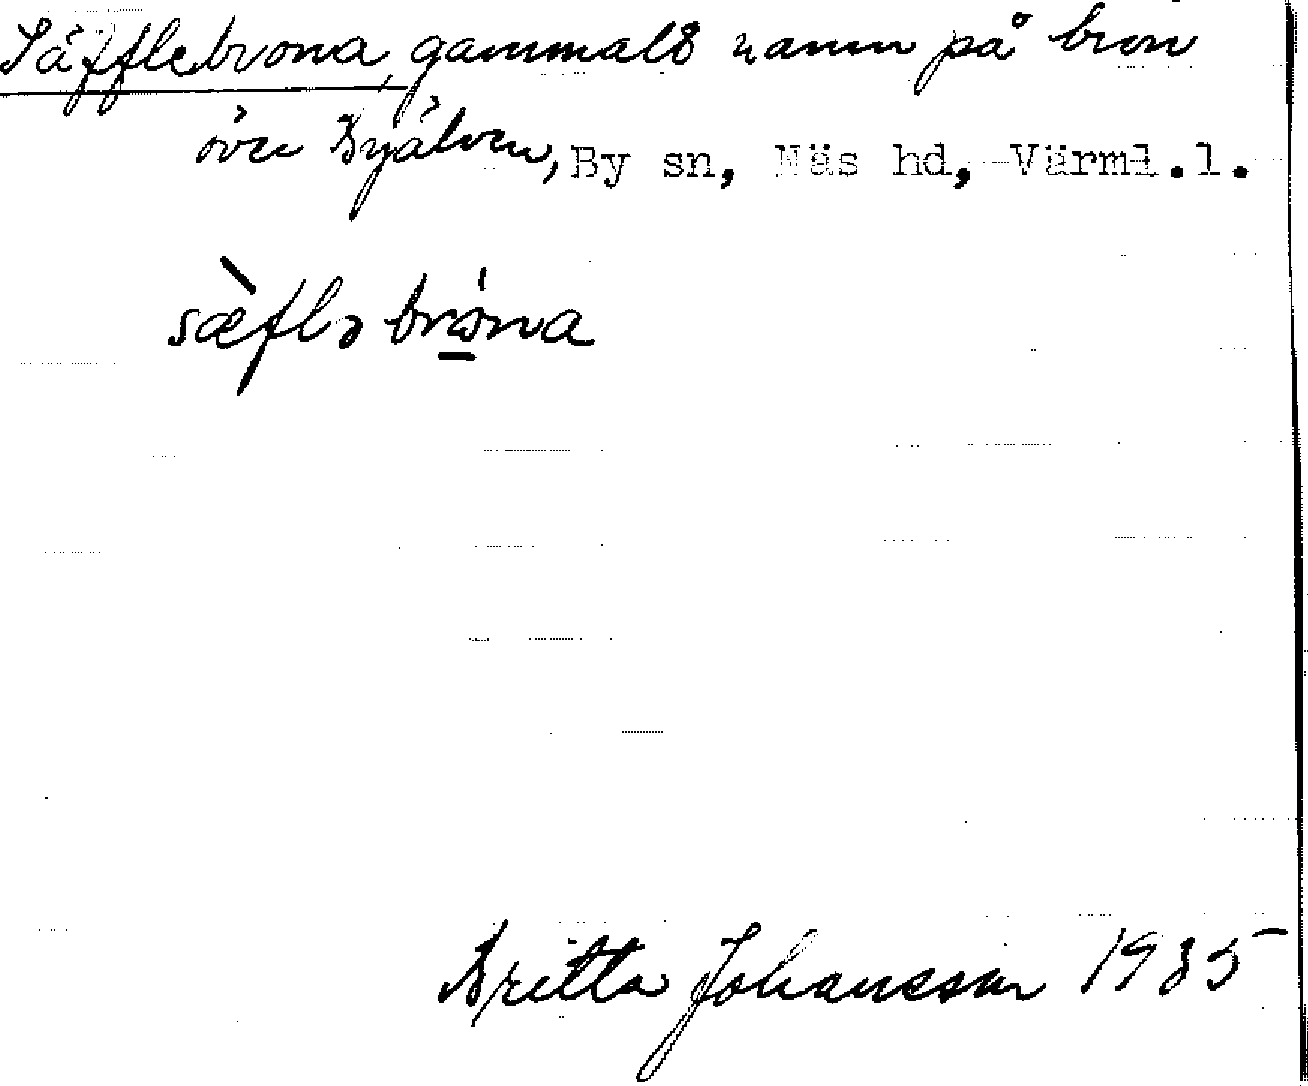 Säfflebrona, gammalt namn på bron
över Byälven, By sn, Näs hd, Värml.l.
sæ̀flə brona
Britta Johansson 1935